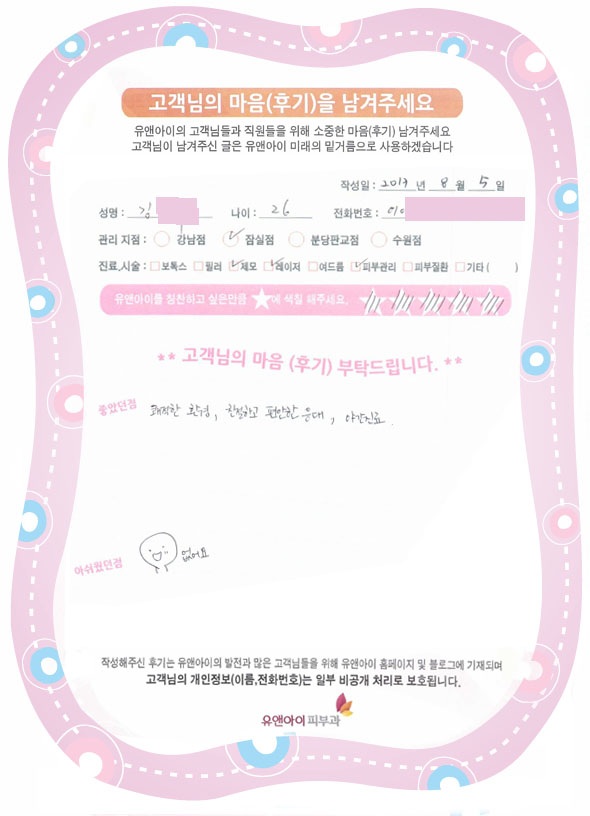 고객님의 마음(후기)을 남겨주세요
유앤아이의 고객님들과 직원들을 위해 소중한 마음(후기) 남겨주세요
고객님이 남겨주신 글은 유앤아이 미래의 밑거름으로 사용하겠습니다
작성일 : 2017 년 8 월 5 일
성명 : 김 나이 : 26 전화번호 : 010
관리 지점 : 강남점 잠실점 분당판교점 수원점
진료,시술 : 보톡스 필러 제모 레이저 여드름 피부관리 피부질환 기타 ( )
유앤아이를 칭찬하고 싶은만큼 ★에 색칠 해주세요.
** 고객님의 마음 (후기) 부탁드립니다. **
좋았던점 쾌적한 환경, 친절하고 편안한 응대, 야간진료.
아쉬웠던점 없어요
작성해주신 후기는 유앤아이의 발전과 많은 고객님들을 위해 유앤아이 홈페이지 및 블로그에 기재되며
고객님의 개인정보(이름,전화번호)는 일부 비공개 처리로 보호됩니다.
유앤아이 피부과